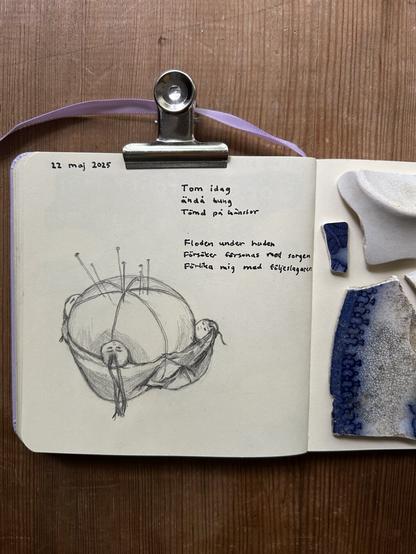 22 maj 2025
Tom idag
ändå tung
Tömd på känslor
Floden under huden
Försöker försonas med sorgen
Förlika mig med följeslagaren